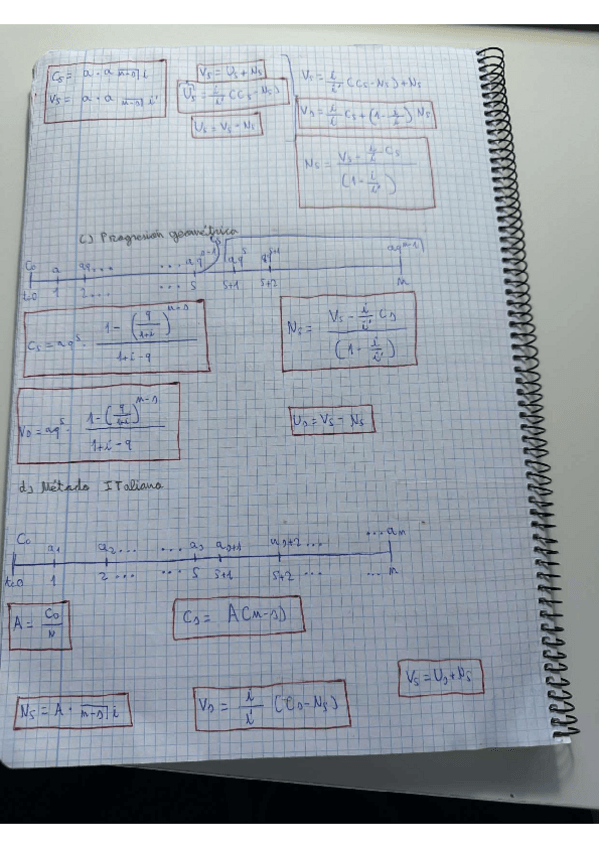 Cs = a · a n-s| i
Vs = a · a n-s| i'
Vs = Us + Ns
Us = i/i' (Cs - Ns)
Us = Vs - Ns
Vs = i/i' (Cs - Ns) + Ns
Vs = i/i' Cs + (1 - i/i') Ns
Ns = (Vs - i/i' · Cs) / (1 - i/i')
c) Progresión geométrica
C0 a aq... ...aq^s-1 aq^s aq^s+1 aq^n-1
t=0 1 2... s s+1 s+2 n
Cs = aq^s · (1 - (q/1+i)^n-s) / (1+i-q)
Ns = (Vs - i/i' Cs) / (1 - i/i')
Vs = aq^s · (1 - (q/1+i)^n-s) / (1+i-q)
Us = Vs - Ns
d) Método Italiano
C0 a1 a2... ...as as+1 as+2... ...an
t=0 1 2... ...s s+1 s+2... ...n
A = C0/N
Cs = A(n-s)
Vs = Us + Ns
Ns = A · n-s| i
Vs = i/i' (Cs - Ns)